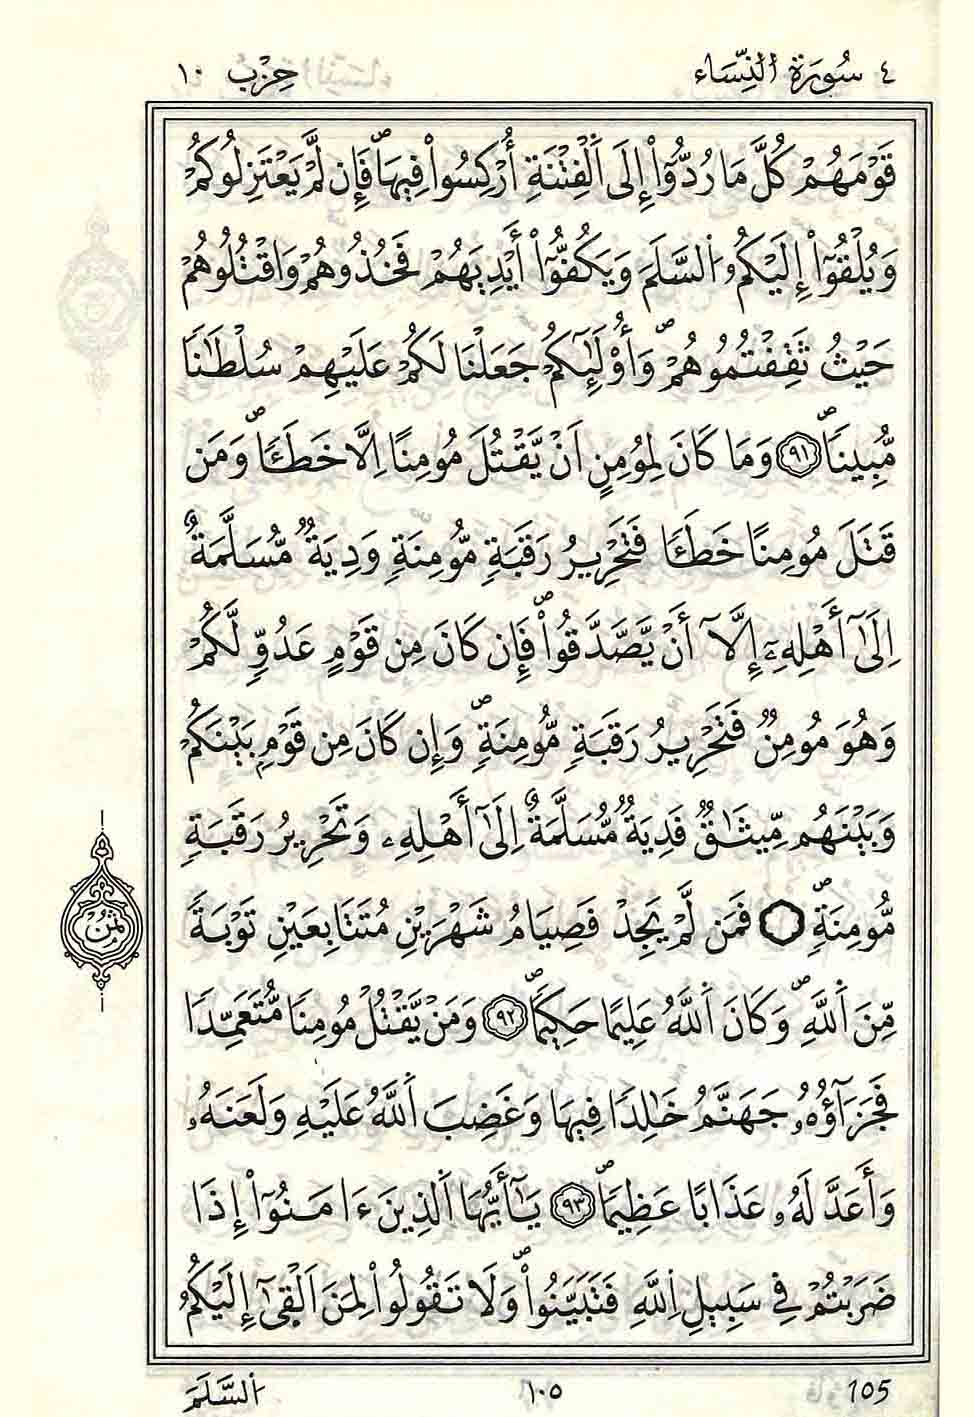 ٤ سُورَةُ اَلنِّسَاء حِزْب ١٠
قَوْمَهُمْ كُلَّ مَا رُدُّوٓاْ إِلَى اَلْفِتْنَةِ أُرْكِسُواْ فِيهَاۖ فَإِن لَّمْ يَعْتَزِلُوكُمْ
وَيُلْقُوٓاْ إِلَيْكُمُ اُلسَّلَمَ وَيَكُفُّوٓاْ أَيْدِيَهُمْ فَخُذُوهُمْ وَاقْتُلُوهُمْ
حَيْثُ ثَقِفْتُمُوهُمْۖ وَأُوْلَٰٓئِكُمْ جَعَلْنَا لَكُمْ عَلَيْهِمْ سُلْطَٰنٗا
مُّبِينٗاۖ ٩١ وَمَا كَانَ لِمُومِنٍ اَنْ يَّقْتُلَ مُومِنًا اِلَّا خَطَـٔٗاۖ وَمَن
قَتَلَ مُومِنًا خَطَـٔٗا فَتَحْرِيرُ رَقَبَةٖ مُّومِنَةٖ وَدِيَةٞ مُّسَلَّمَةٌ
اِلَىٰٓ أَهْلِهِۦٓ إِلَّآ أَنْ يَّصَّدَّقُواْۖ فَإِن كَانَ مِن قَوْمٍ عَدُوّٖ لَّكُمْ
وَهُوَ مُومِنٞ فَتَحْرِيرُ رَقَبَةٖ مُّومِنَةٖۖ وَإِن كَانَ مِن قَوْمِۭ بَيْنَكُمْ
وَبَيْنَهُم مِّيثَٰقٞ فَدِيَةٞ مُّسَلَّمَةٌ اِلَىٰٓ أَهْلِهِۦ وَتَحْرِيرُ رَقَبَةٖ
مُّومِنَةٖۖ فَمَن لَّمْ يَجِدْ فَصِيَامُ شَهْرَيْنِ مُتَتَابِعَيْنِ تَوْبَةٗ
ثُمُن
مِّنَ اَللَّهِۖ وَكَانَ اَللَّهُ عَلِيمًا حَكِيمٗاۖ ٩٢ وَمَنْ يَّقْتُلْ مُومِنٗا مُّتَعَمِّدٗا
فَجَزَآؤُهُۥ جَهَنَّمُ خَٰلِدٗا فِيهَا وَغَضِبَ اَللَّهُ عَلَيْهِ وَلَعَنَهُۥ
وَأَعَدَّ لَهُۥ عَذَابًا عَظِيمٗاۖ ٩٣ يَٰٓأَيُّهَا اَلذِينَ ءَامَنُوٓاْ إِذَا
ضَرَبْتُمْ فِي سَبِيلِ اِللَّهِ فَتَبَيَّنُواْۖ وَلَا تَقُولُواْ لِمَنَ اَلْقَىٰٓ إِلَيْكُمُ
105 ١٠٥ اُلسَّلَمَ